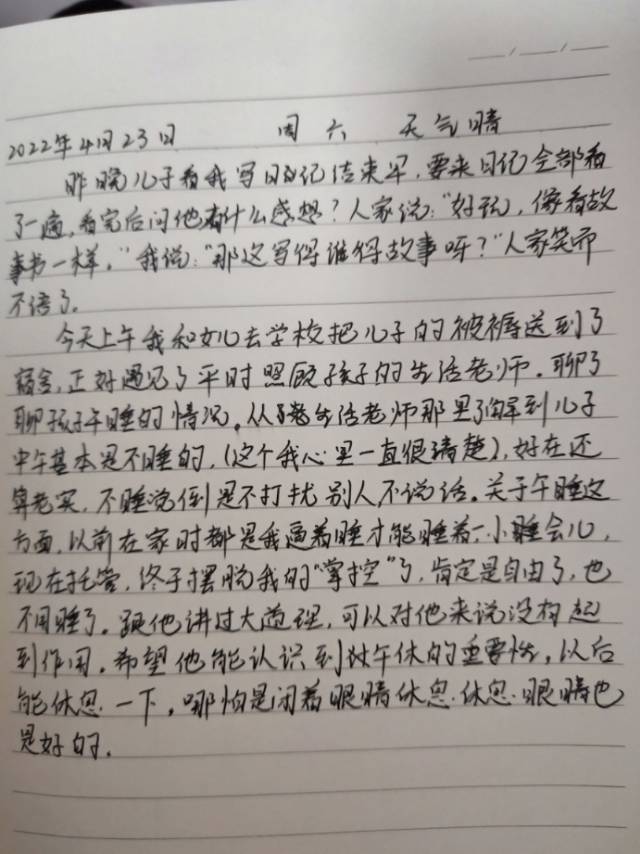 2022年4月23日 周六 天气晴
昨晚儿子看我写日记结束早,要来日记全部看
了一遍,看完后问他有什么感想?人家说:"好玩,像看故
事书一样。"我说:"那这写得谁得故事呀?"人家笑而
不语了。
今天上午我和女儿去学校把儿子的被褥送到了
宿舍,正好遇见了平时照顾孩子的生活老师。聊了
聊孩子午睡的情况。从生活老师那里了解到儿子
中午基本是不睡的,(这个我心里一直很清楚),好在还
算老实,不睡觉倒是不打扰别人不说话。关于午睡这
方面,以前在家时都是我逼着睡才能睡着一小睡会儿,
现在托管,终于摆脱我的"掌控"了,肯定是自由了,也
不用睡了。跟他讲过大道理,可以对他来说没有起
到作用。希望他能认识到对午休的重要性,以后
能休息一下,哪怕是闭着眼睛休息.休息.眼睛也
是好的。